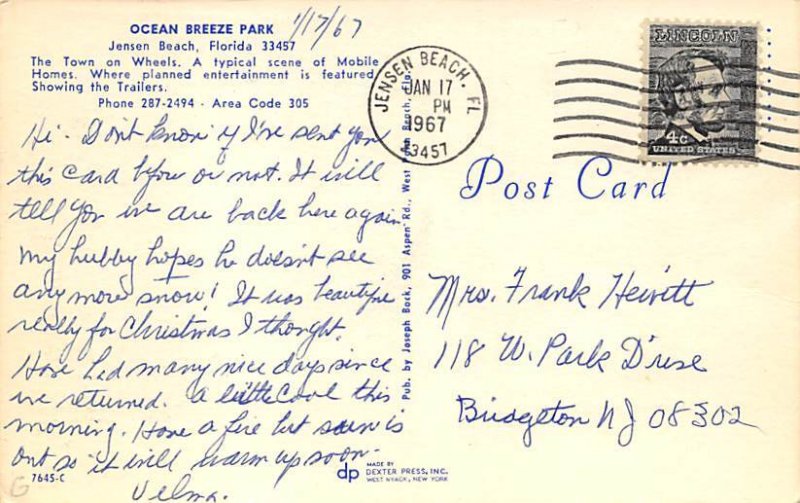 OCEAN BREEZE PARK 1/17/67
Jensen Beach, Florida 33457
The Town on Wheels. A typical scene of Mobile
Homes. Where planned entertainment is featured
Showing the Trailers.
Phone 287-2494 - Area Code 305
Hi - Don't know if I've sent you
this card before or not. It will
tell you we are back here again
My hubby hopes he doesn't see
any more snow! It was beautiful
really for Christmas I thought.
Have had many nice days since
we returned. A little cool this
morning. Have a fire but sun is
out so it will warm up soon.
Velma.
7645-C
G
Pub. by Joseph Bock, 901 Aspen Rd., West Palm Beach, Fla.
dp MADE BY
DEXTER PRESS, INC.
WEST NYACK, NEW YORK
JENSEN BEACH, FL
JAN 17
PM
1967
33457
LINCOLN
4c
UNITED STATES
Post Card
Mrs. Frank Hewitt
118 W. Park Drive
Bridgeton NJ 08302